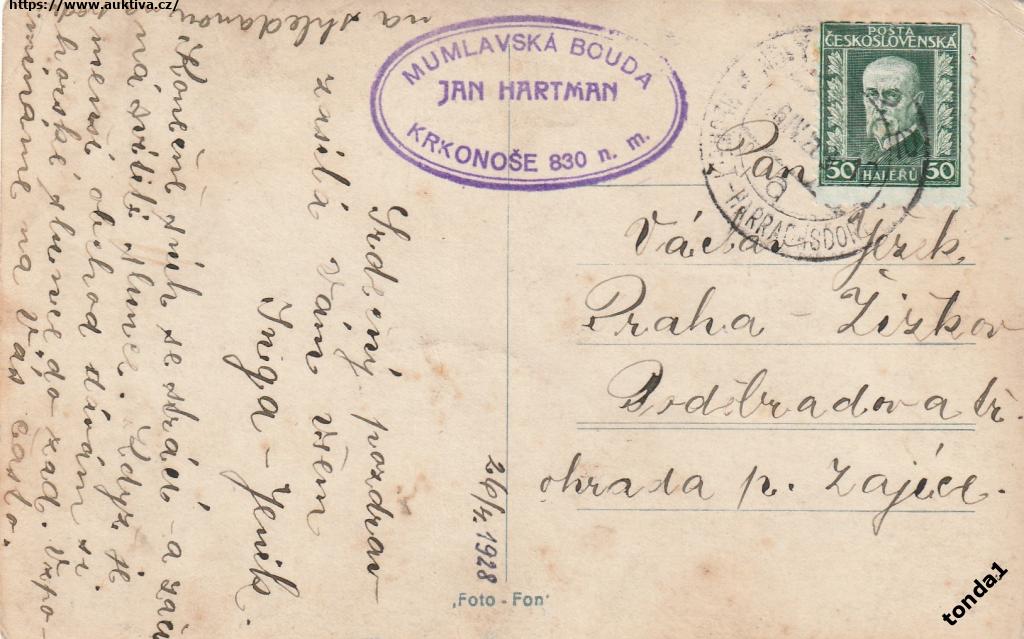 https://www.auktiva.cz/
MUMLAVSKÁ BOUDA
JAN HARTMAN
KRKONOŠE 830 n. m.
POŠTA
ČESKOSLOVENSKÁ
50 HALÉŘŮ 50
HARRACHSDORF
Pan
Václav Jezk,
Praha - Žižkov
Poděbradova tř.
ohrada p. Zajíce.
Srdečný pozdrav
zasílá Vám všem
Inga - Jeník.
26/4. 1928
Konečně sníh se ztrácí - a začí
ná svítiti slunce. Když si
menší obchod dávám si
horské slunce do zad. Vzpo
mínáme na Vás často.
na shledanou
„Foto - Fon"
tonda1